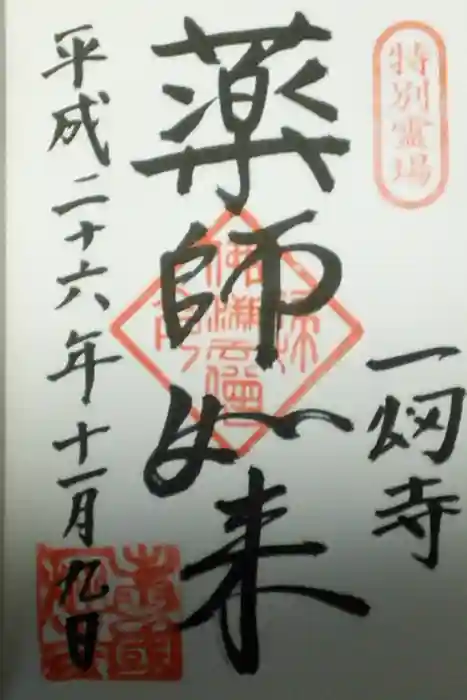 特別霊場
一畑寺
薬師如来
平成二十六年十一月九日